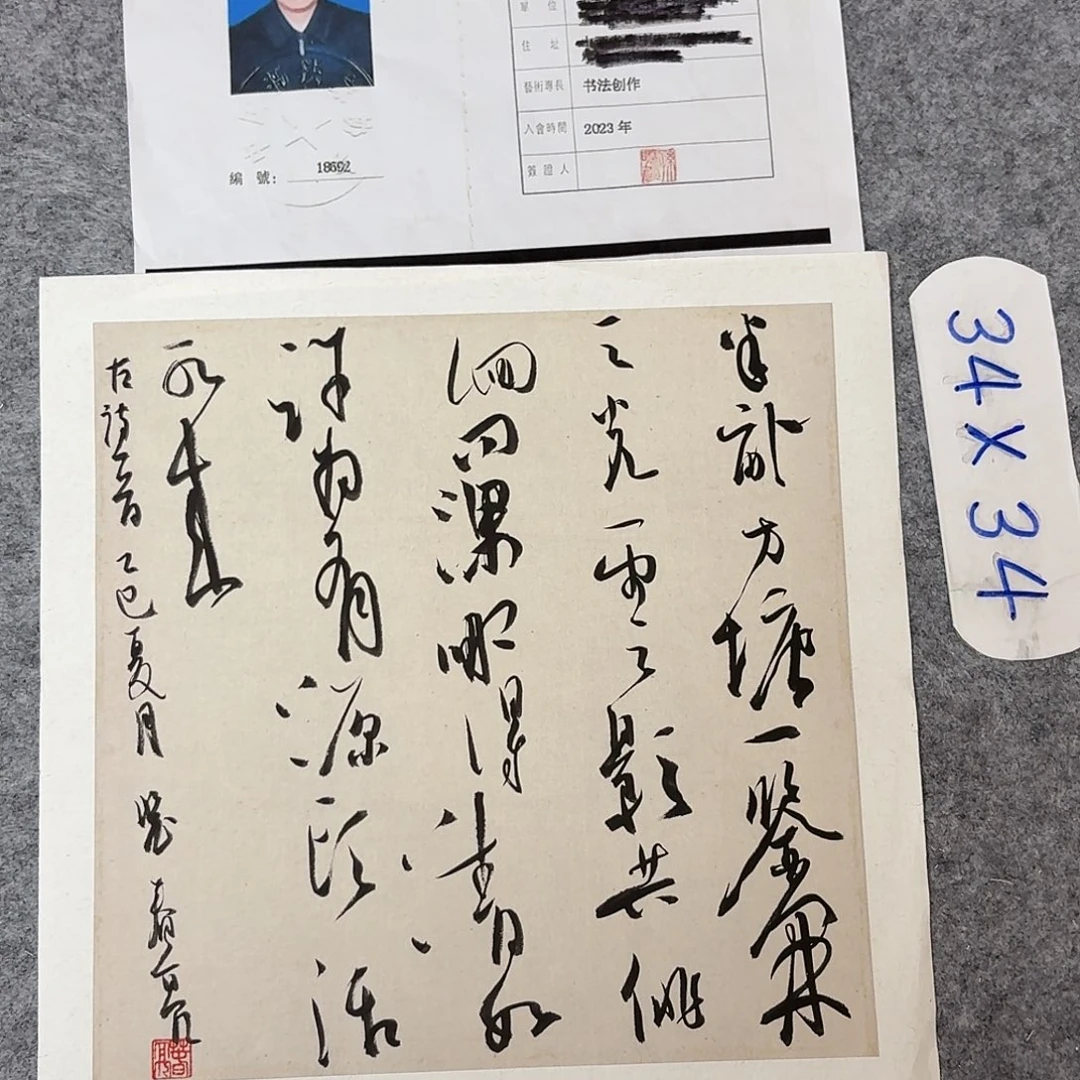 單 位
住 址
藝術專長 书法创作
入會時間 2023 年
簽證人
編 號:
半畝方塘一鑒開
天光雲影共徘
徊問渠哪得清如
許為有源頭活
水來
古詩一首 乙巳夏月
34X34